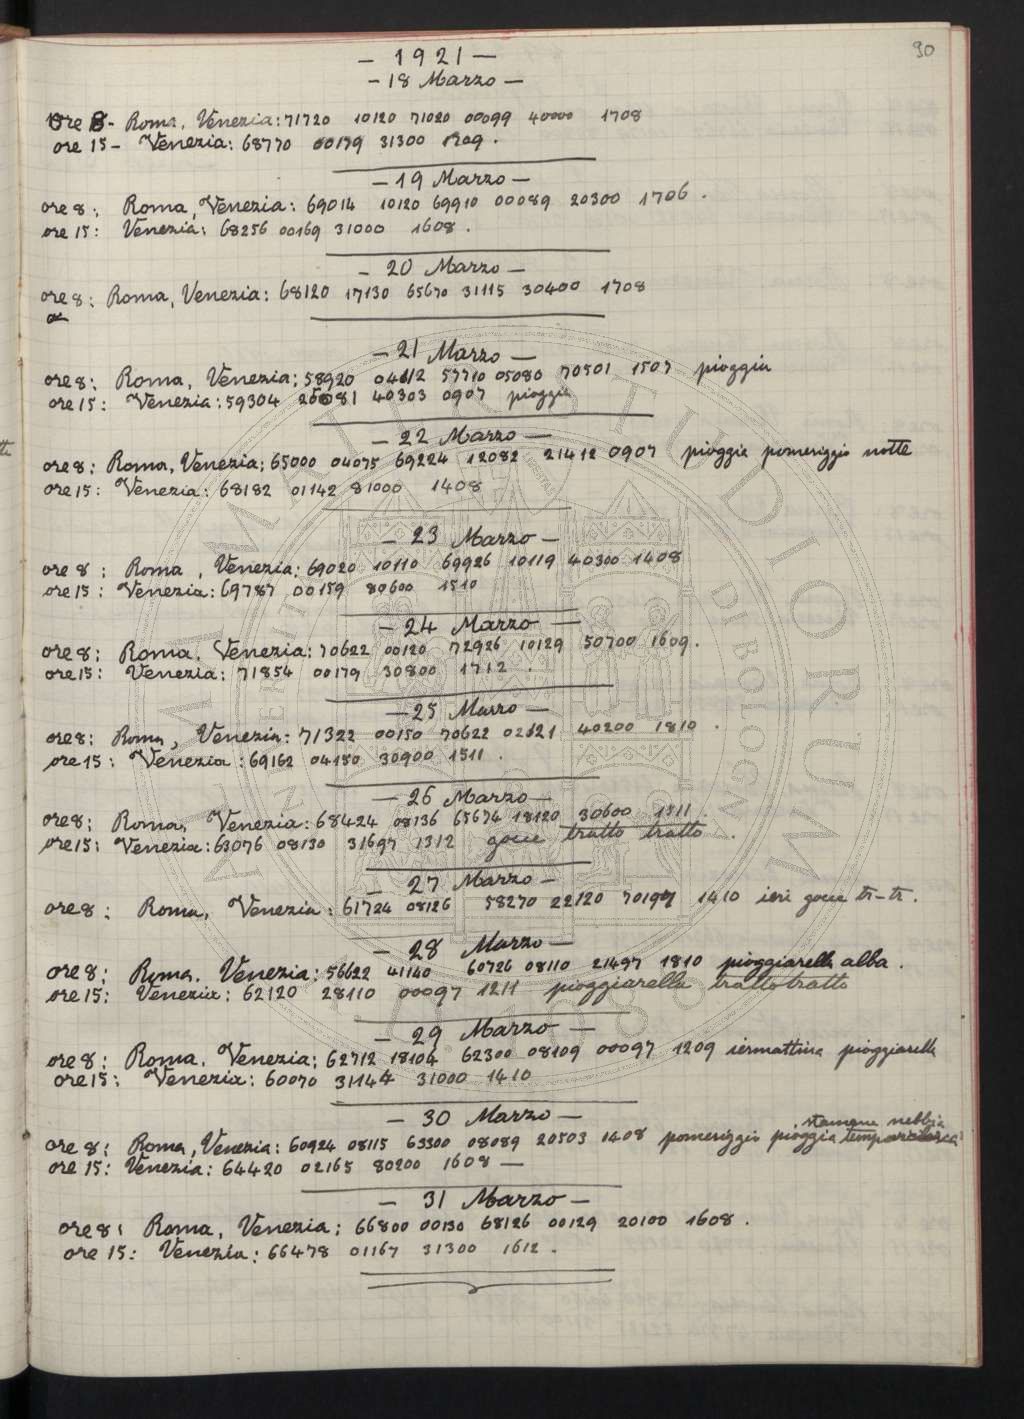 90
- 1921 -
- 18 Marzo -
ore 8 - Roma, Venezia: 71720 10120 71020 00099 40000 1708
ore 15 - Venezia: 68770 00179 31300 1209.
- 19 Marzo -
ore 8: Roma, Venezia: 69014 10120 69910 00089 20300 1706.
ore 15: Venezia: 68256 00169 31000 1608.
- 20 Marzo -
ore 8: Roma, Venezia: 68120 17130 65670 31115 30400 1708
- 21 Marzo -
ore 8: Roma, Venezia: 58920 04612 57710 05080 70501 1507 pioggia
ore 15: Venezia: 59304 26081 40303 0907 pioggia
- 22 Marzo -
ore 8: Roma, Venezia: 65000 04075 69224 12082 21412 0907 pioggia pomeriggio notte
ore 15: Venezia: 68182 01142 81000 1408
- 23 Marzo -
ore 8: Roma, Venezia: 69020 10110 69926 10119 40300 1408
ore 15: Venezia: 69787 00159 80600 1510
- 24 Marzo -
ore 8: Roma, Venezia: 70622 00120 72926 10129 50700 1609.
ore 15: Venezia: 71854 00179 30800 1712.
- 25 Marzo -
ore 8: Roma, Venezia: 71322 00150 70622 02121 40200 1810.
ore 15: Venezia: 69162 04150 30900 1511.
- 26 Marzo -
ore 8: Roma, Venezia: 68424 08136 65674 18120 30600 1511.
ore 15: Venezia: 63076 08130 31697 1312 gocce tratto tratto.
- 27 Marzo -
ore 8: Roma, Venezia: 61724 08126 58270 22120 70197 1410 ieri gocce tr-tr.
- 28 Marzo -
ore 8: Roma, Venezia: 56622 41140 60726 08110 21497 1810 pioggiarella alba.
ore 15: Venezia: 62120 28110 00097 1211 pioggiarella tratto tratto
- 29 Marzo -
ore 8: Roma, Venezia: 62712 18104 62300 08109 00097 1209 iermattina pioggiarella
ore 15: Venezia: 60070 31144 31000 1410
- 30 Marzo -
stamane nebbia
ore 8: Roma, Venezia: 60924 08115 63300 08089 20503 1408 pomeriggio pioggia temporalesca
ore 15: Venezia: 64420 02165 80200 1608 -
- 31 Marzo -
ore 8: Roma, Venezia: 66800 00130 68126 00129 20100 1608.
ore 15: Venezia: 66478 01167 31300 1612.
ALMA MATER STUDIORUM
UNIVERSITÀ DI BOLOGNA